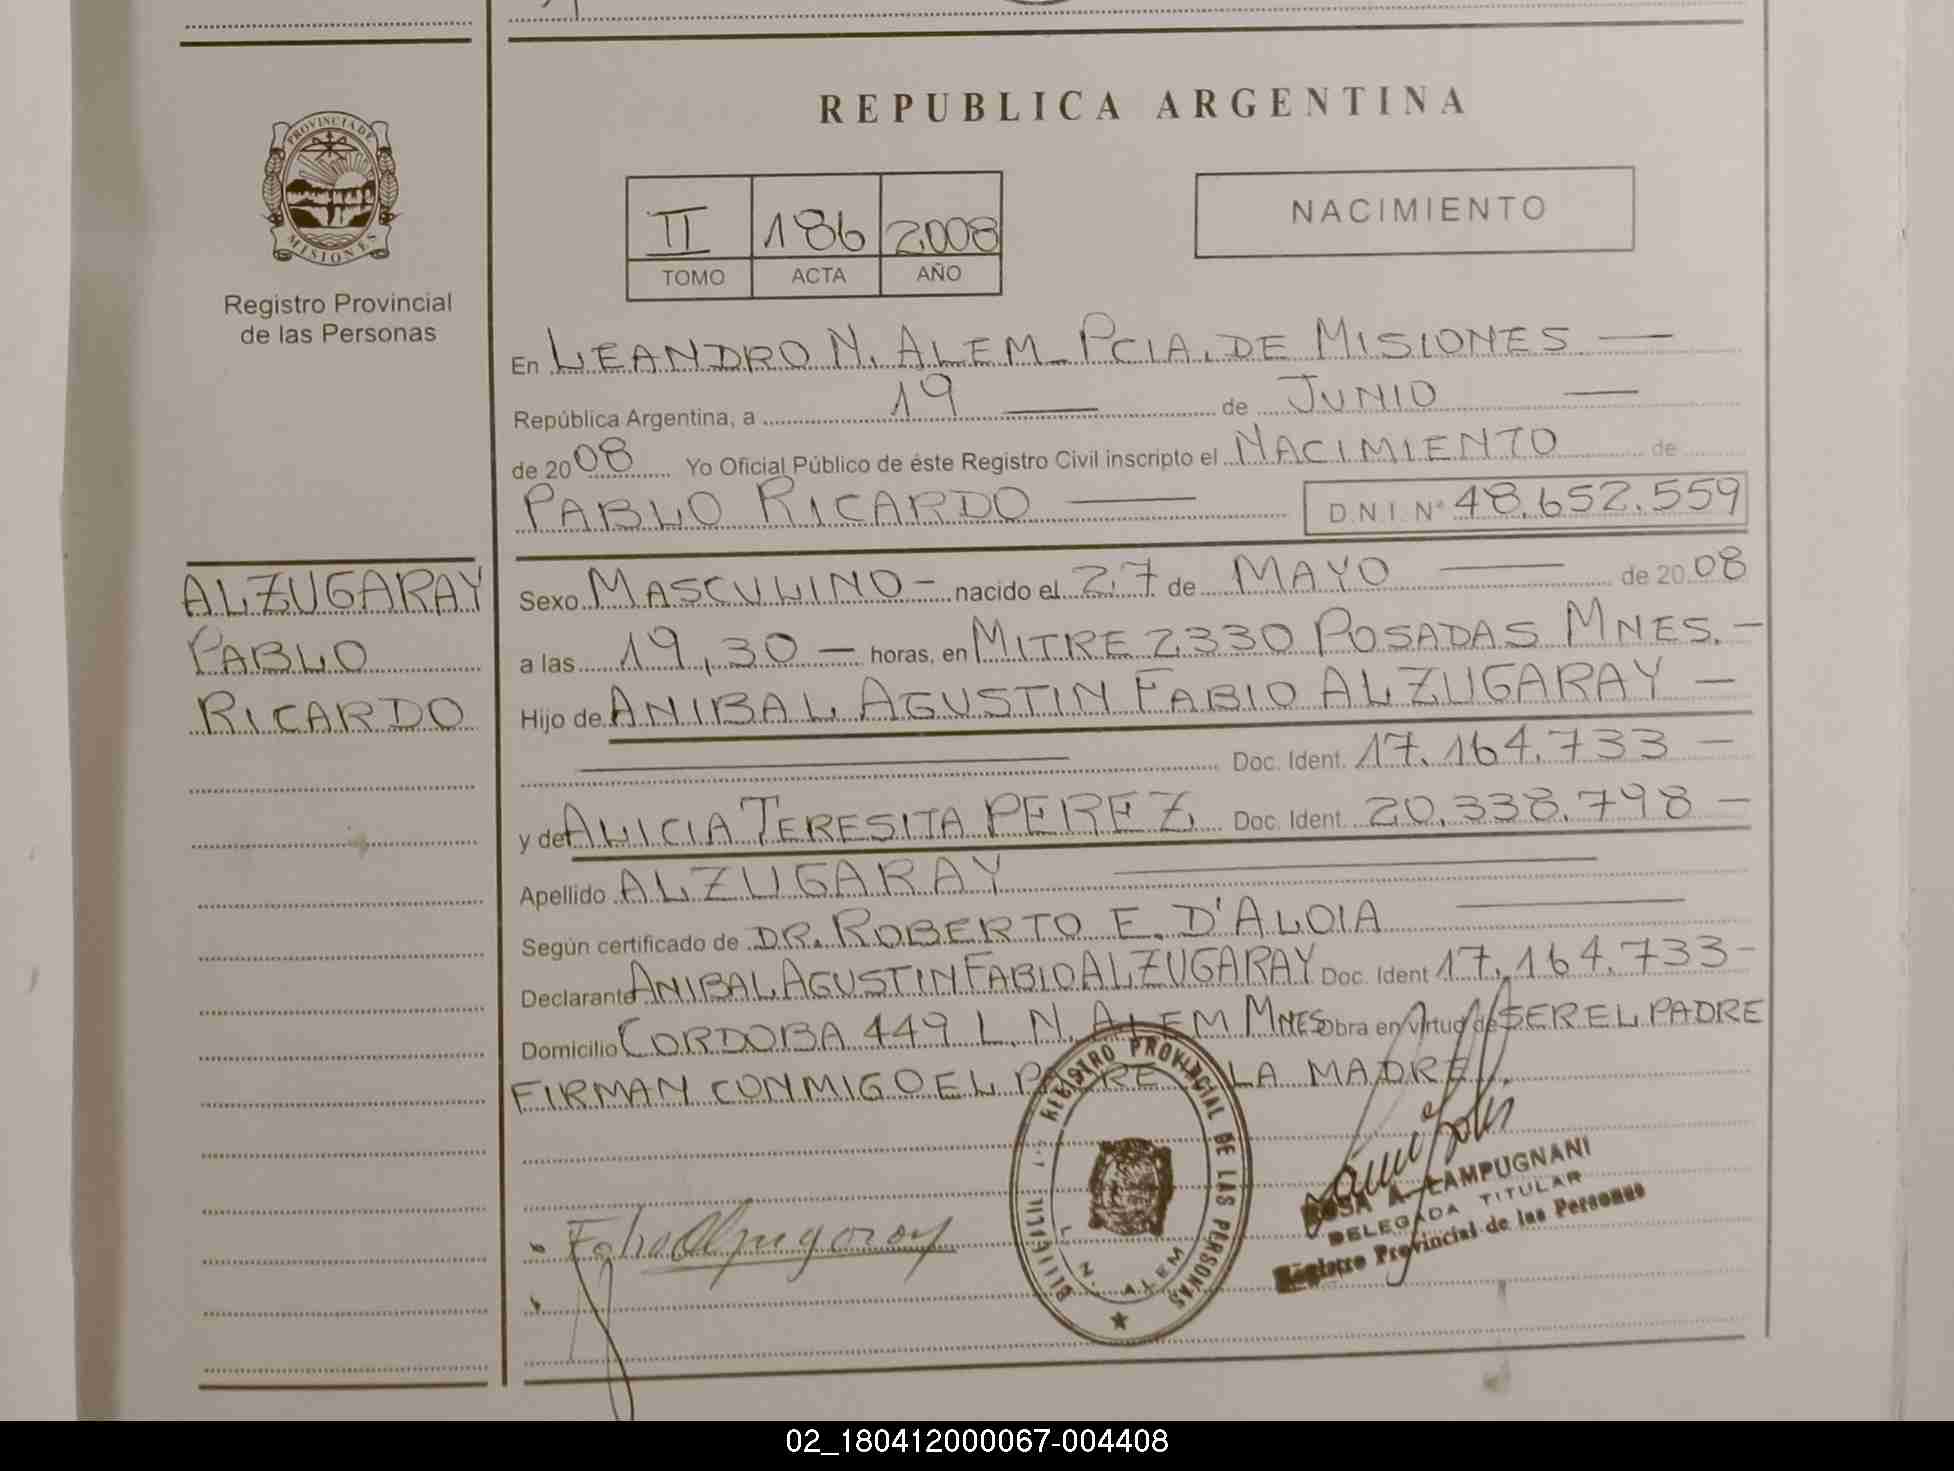 REPUBLICA ARGENTINA
PROVINCIA DE
MISIONES
Registro Provincial
de las Personas
II 186 2008
TOMO ACTA AÑO
NACIMIENTO
En LEANDRO N. ALEM - PCIA. DE MISIONES. —
República Argentina, a 19 — de JUNIO —
de 2008 Yo Oficial Público de éste Registro Civil inscripto el NACIMIENTO de
PABLO RICARDO — D.N.I. Nº 48.652.559
ALZUGARAY
PABLO
RICARDO
Sexo MASCULINO - nacido el 27 de MAYO — de 2008
a las 19,30 — horas, en MITRE 2330 POSADAS MNES. -
Hijo de ANIBAL AGUSTIN FABIO ALZUGARAY -
— Doc. Ident. 17.164.733 -
y de ALICIA TERESITA PEREZ Doc. Ident. 20.338.798 -
Apellido ALZUGARAY —
Según certificado de DR. ROBERTO E. D'ALOIA —
Declarante ANIBAL AGUSTIN FABIO ALZUGARAY Doc. Ident 17.164.733-
Domicilio CORDOBA 449 L. N. ALEM MNES Obra en virtud de SER EL PADRE
FIRMAN CONMIGO EL PADRE LA MADRE.
REGISTRO PROVINCIAL DE LAS PERSONAS
L. N. ALEM
Fabio Alzugaray
ROSA A. LAMPUGNANI
DELEGADA TITULAR
Registro Provincial de las Personas
02_180412000067-004408